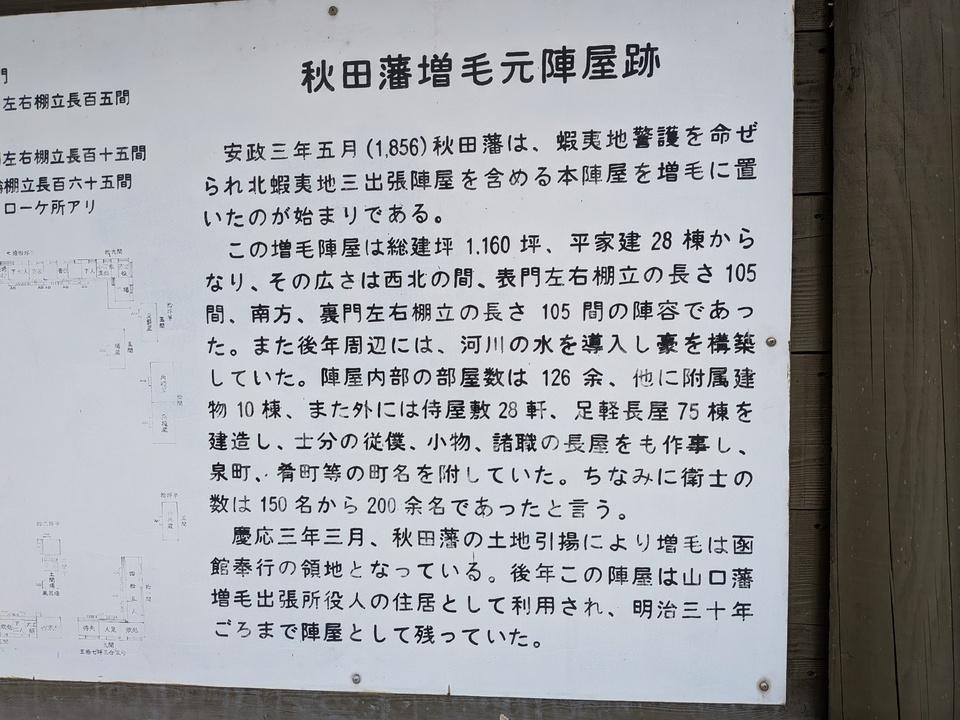 秋田藩増毛元陣屋跡
安政三年五月(1,856)秋田藩は、蝦夷地警護を命ぜ
られ北蝦夷地三出張陣屋を含める本陣屋を増毛に置
いたのが始まりである。
この増毛陣屋は総建坪 1.160 坪、平家建 28 棟から
なり、その広さは西北の間、表門左右棚立の長さ 105
間、南方、裏門左右棚立の長さ 105 間の陣容であっ
た。また後年周辺には、河川の水を導入し豪を構築
していた。陣屋内部の部屋数は 126 余、他に附属建
物 10 棟、また外には侍屋敷 28 軒、足軽長屋 75 棟を
建造し、士分の従僕、小物、諸職の長屋をも作事し、
泉町、肴町等の町名を附していた。ちなみに衛士の
数は 150 名から 200 余名であったと言う。
慶応三年三月、秋田藩の土地引揚により増毛は函
館奉行の領地となっている。後年この陣屋は山口藩
増毛出張所役人の住居として利用され、明治三十年
ごろまで陣屋として残っていた。
門
左右棚立長百五間
左右棚立長百十五間
棚立長百六十五間
ローケ所アリ